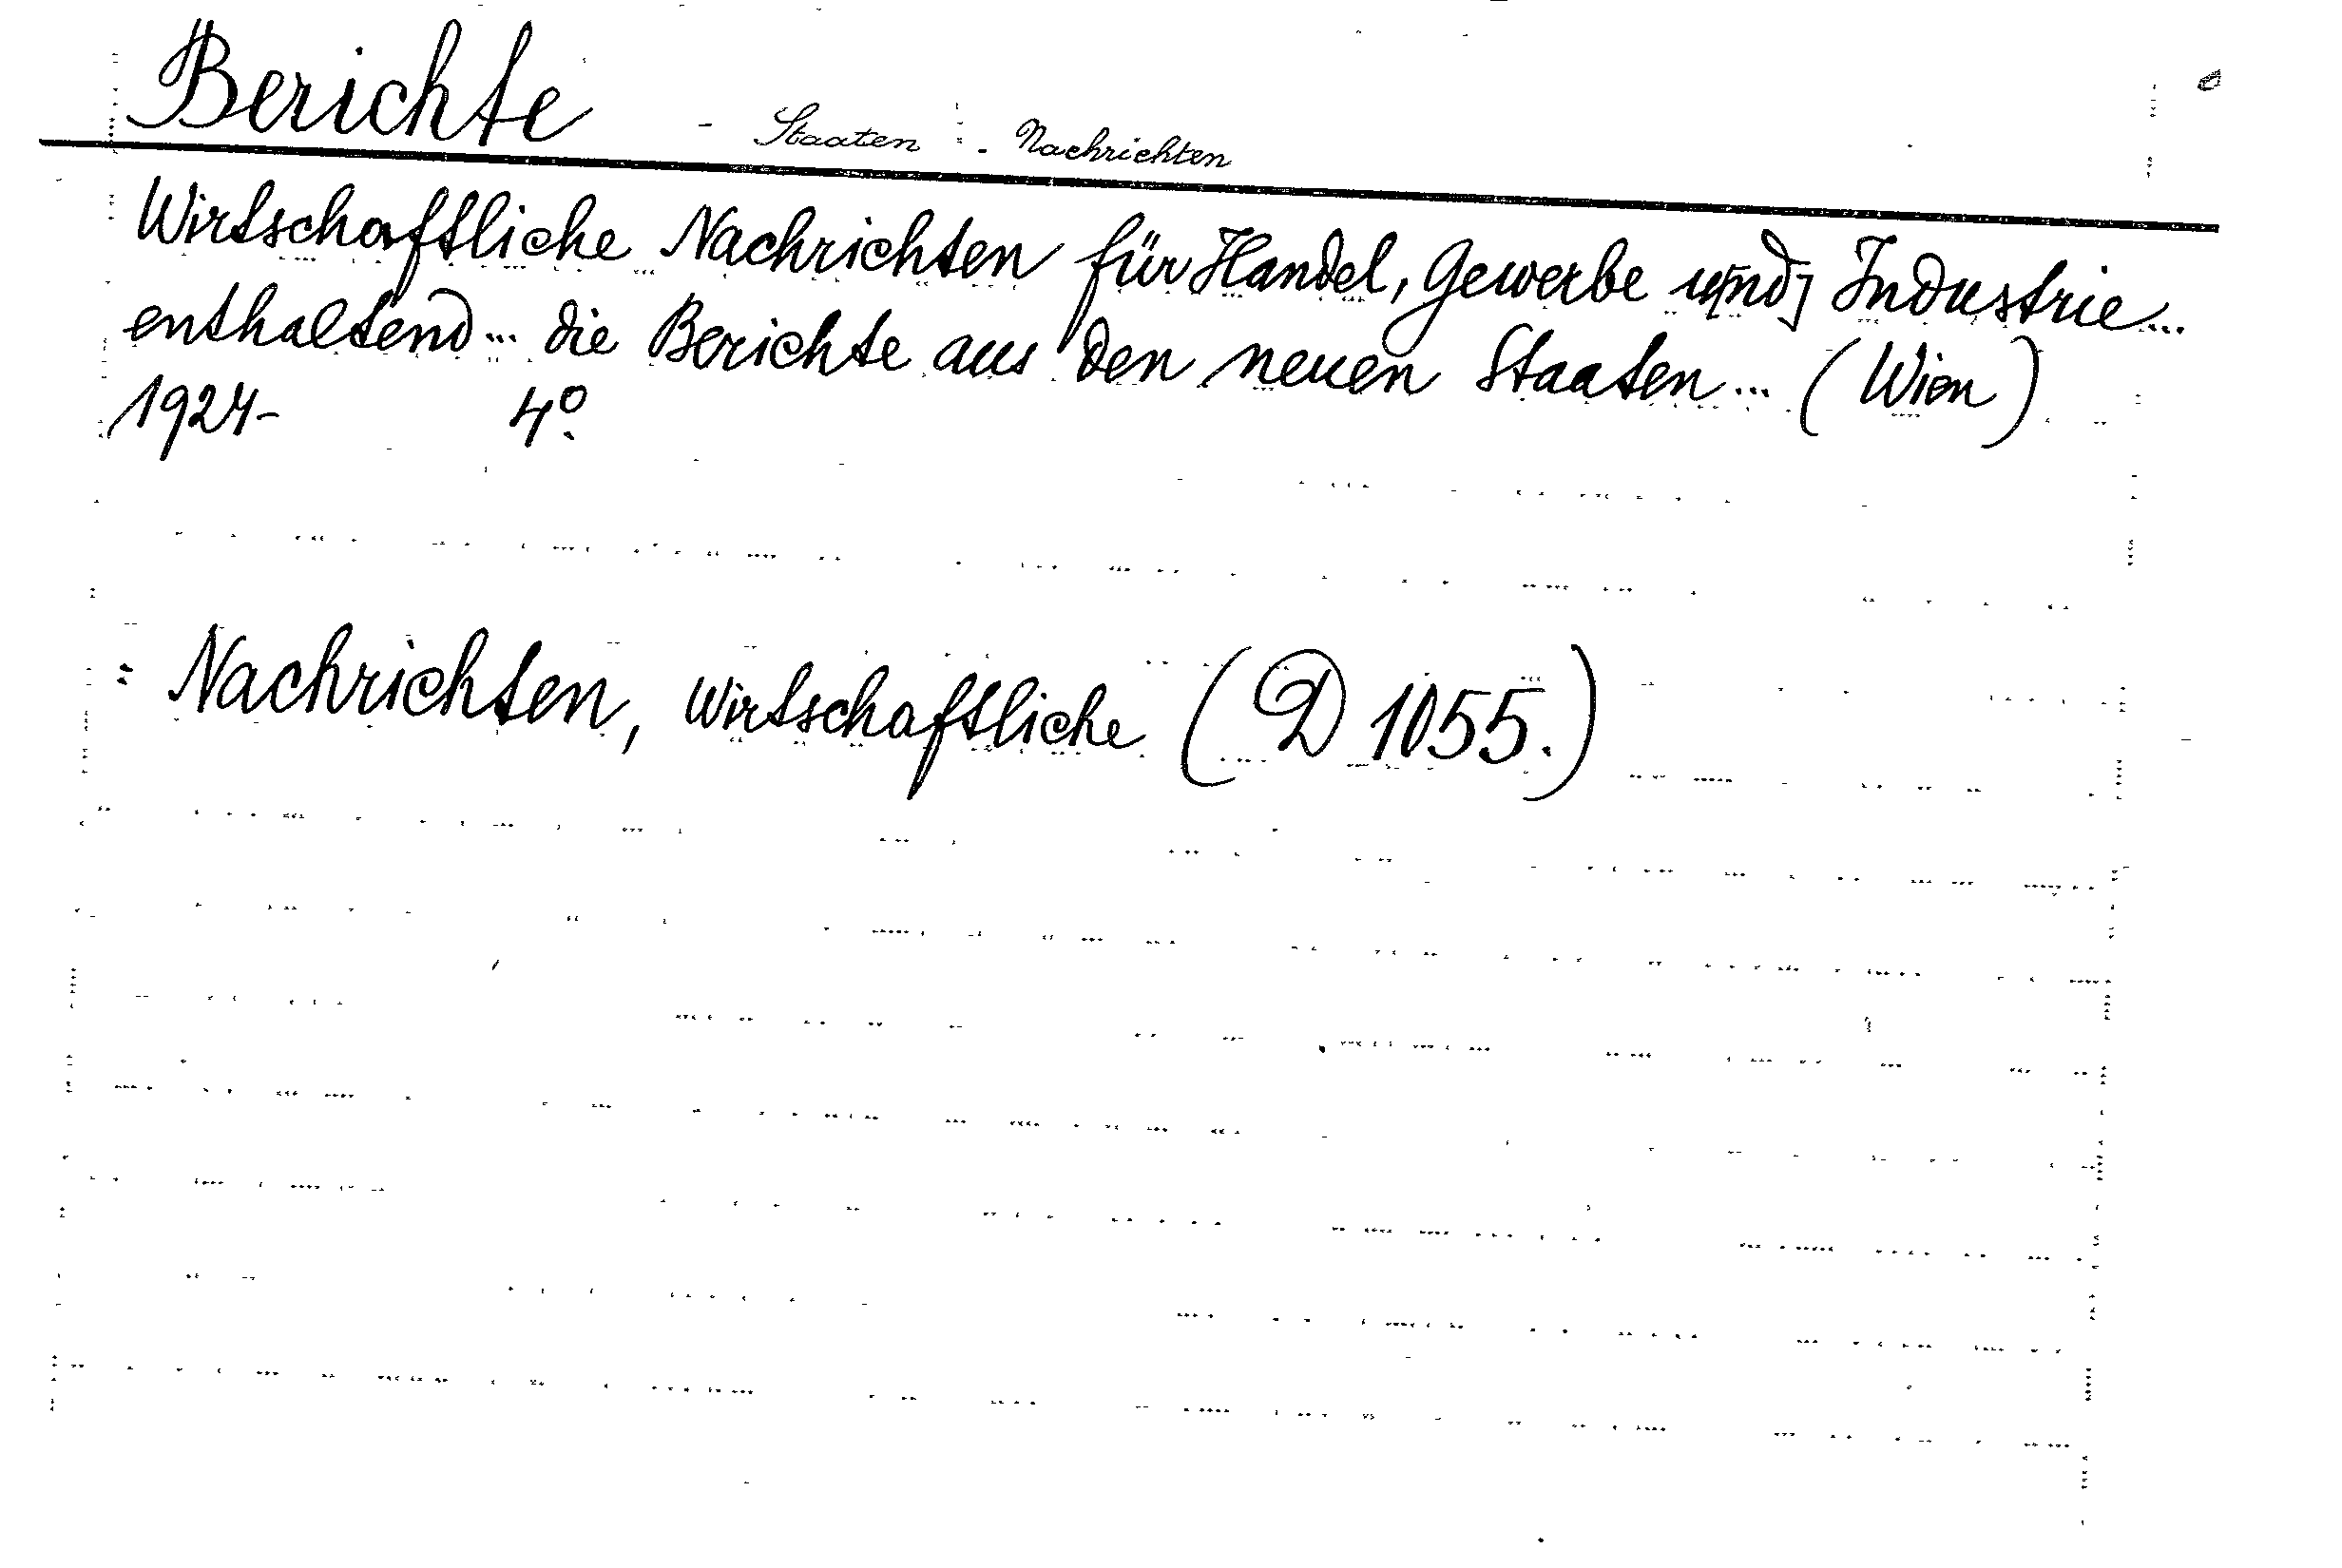 Berichte - Staaten - Nachrichten
Wirtschaftliche Nachrichten für Handel, Gewerbe u[nd] Industrie...
enthaltend... die Berichte aus den neuen Staaten... (Wien)
1924- 4º
: Nachrichten, Wirtschaftliche (D 1055.)